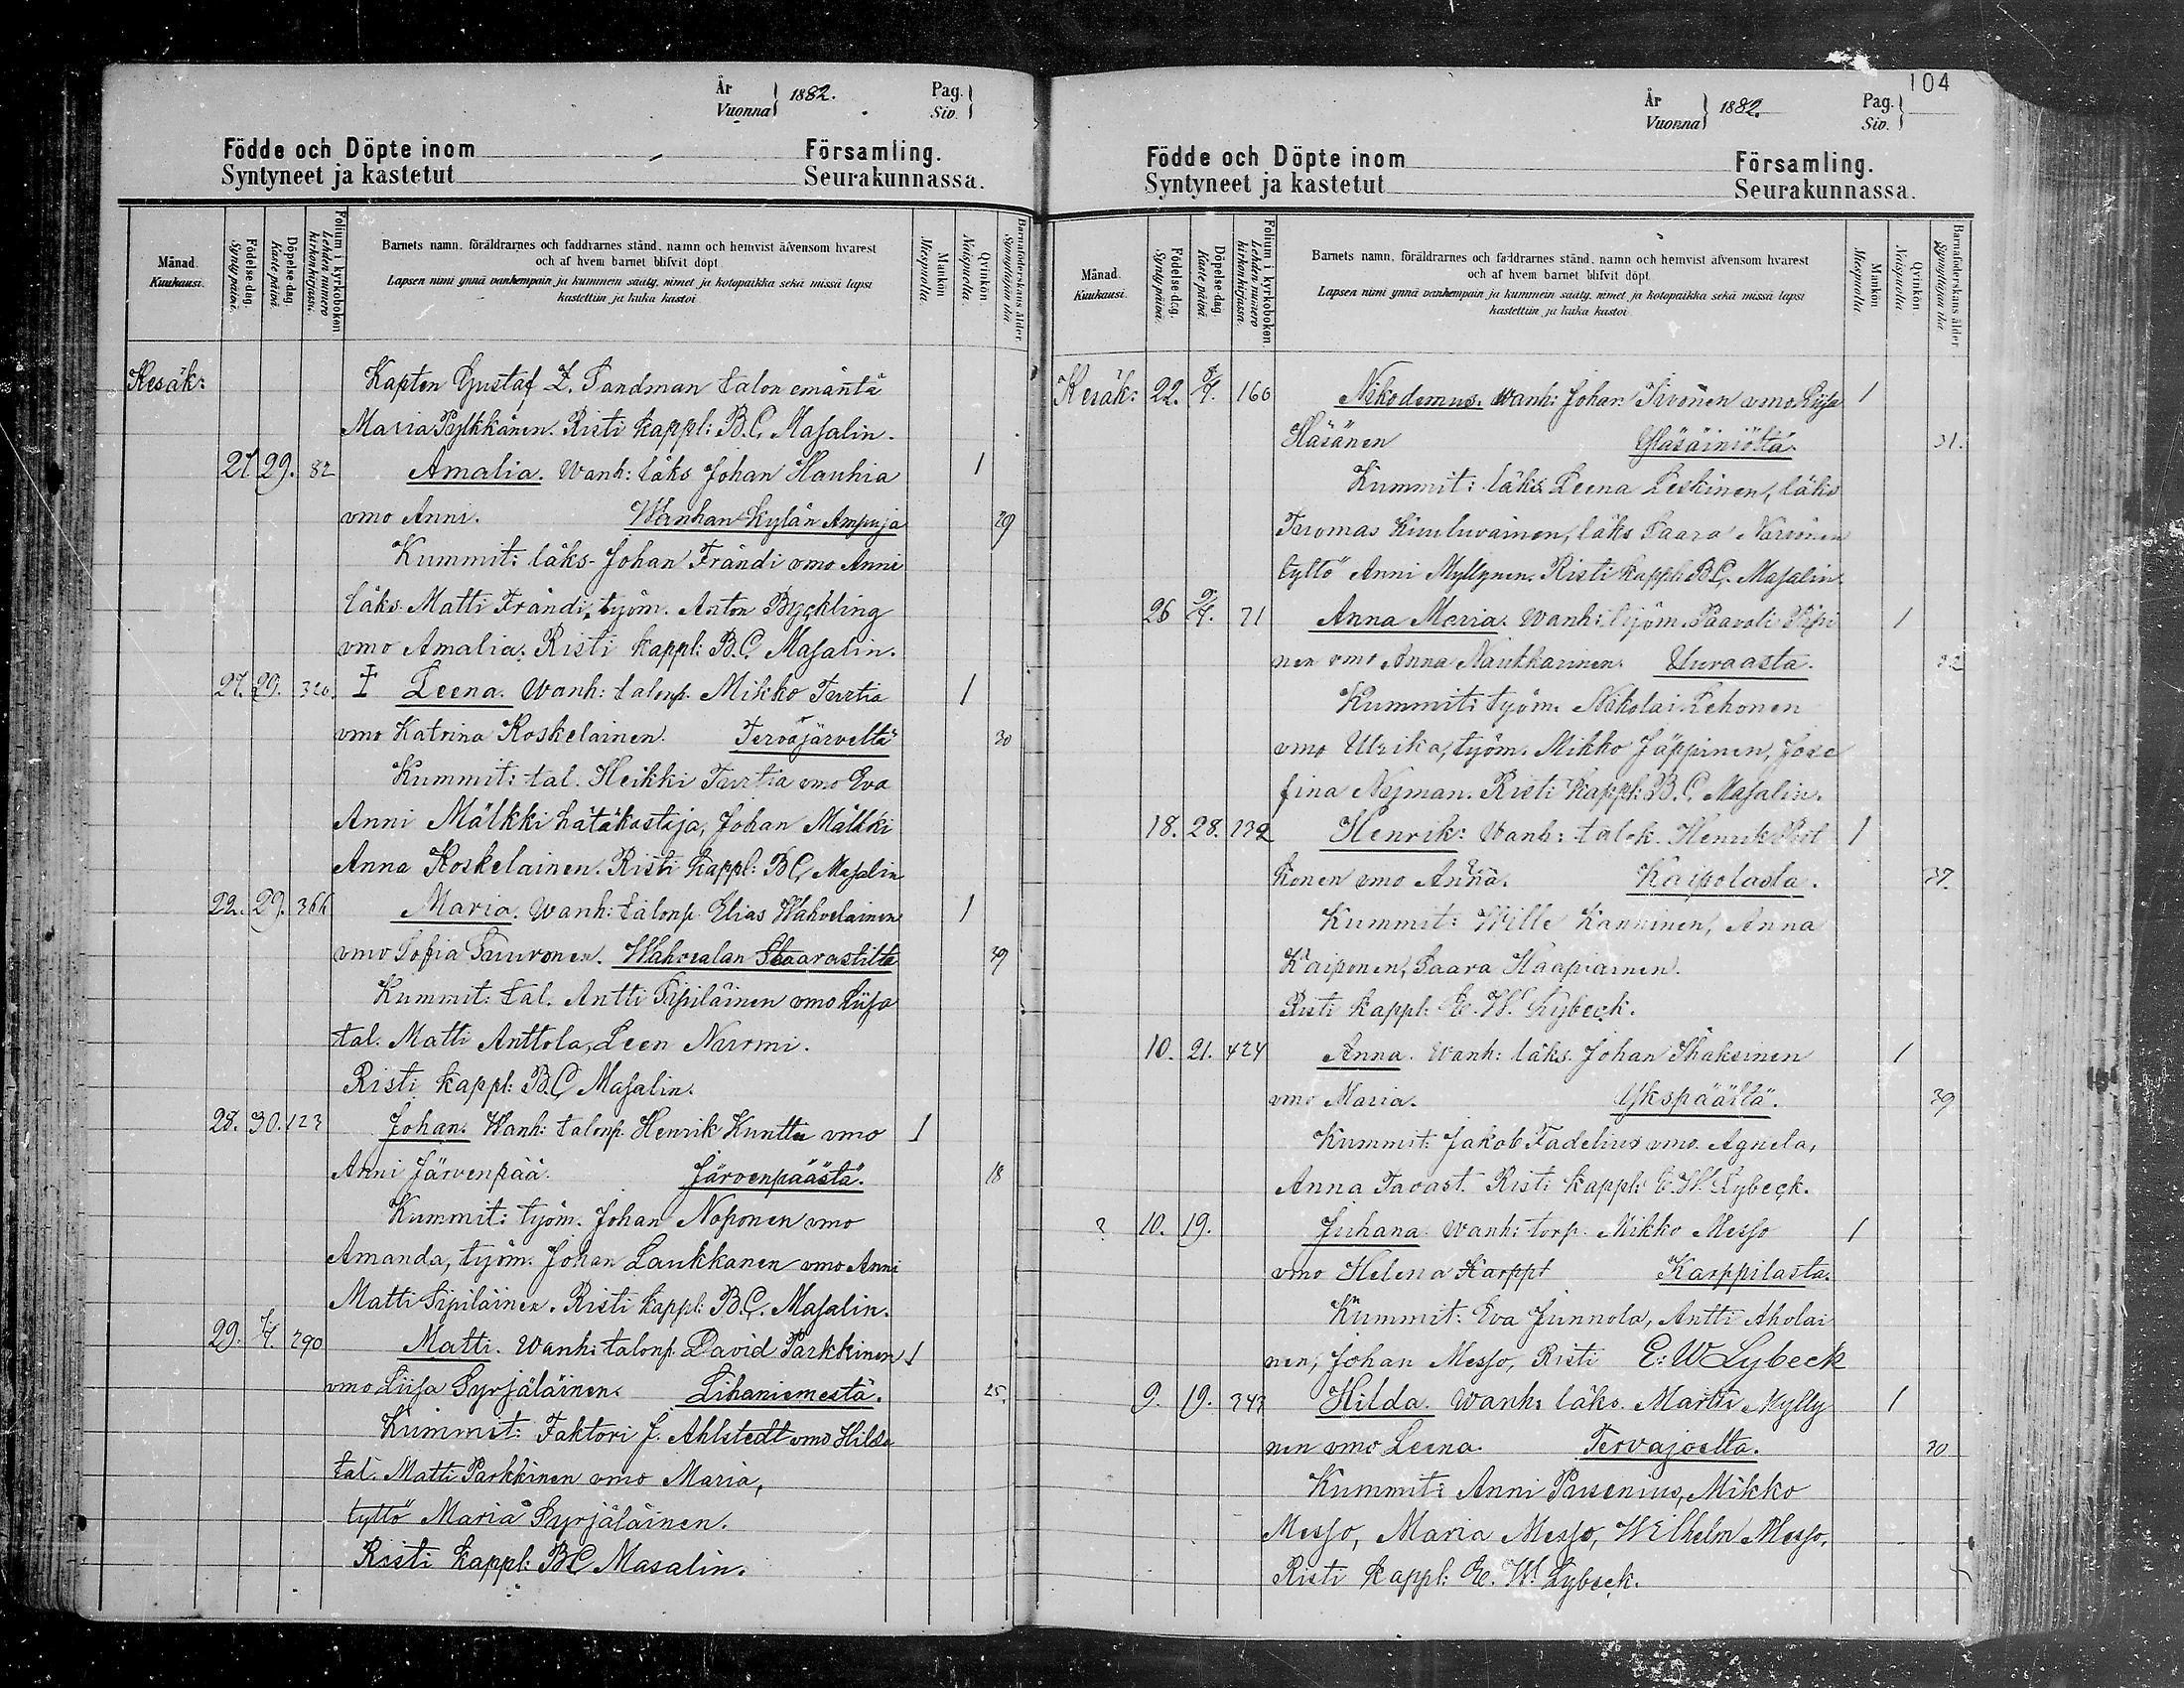 År
Vuonna } 1882.
Pag.
Siv. }
Födde och Döpte inom Församling.
Syntyneet ja kastetut Seurakunnassa.
Månad.
Kuukausi.
Födelse-dag.
Syntypäivä.
Döpelse-dag.
Kastepäivä.
Folium i kyrkoboken.
Lehden numero kirkonkirjassa.
Barnets namn, föräldrarnes och faddrarnes stånd, namn och hemvist äfvensom hvarest
och af hvem barnet blifvit döpt
Lapsen nimi ynnä vanhempain ja kummein sääty, nimet ja kotopaikka sekä missä lapsi
kastettiin ja kuka kastoi
Mankön
Miespuolia.
Qvinkön
Naispuolia.
Barnaföderskans ålder
Synnyttäjän ikä
Kesäk: Kapten Gustaf Z. Sandman talon emäntä
Maria Pylkkänen. Risti kappl: B.C. Masalin.
27 29. 82 Amalia. Wanh: läks Johan Hauhia 1
vmo Anni. Wanhan Kylän Ampuja 29
Kummit: läks. Johan Frändi vmo Anni
läks. Matti Frändi, työm. Anton Byckling
vmo Amalia. Risti kappl: B.C. Masalin.
27. 29. 320. ‡ Leena. Wanh: talonp. Mikko Turtia 1
vmo Katrina Koskelainen. Tervajärveltä 30
Kummit: tal. Heikki Turtia vmo Eva
Anni Mälkki hätäkastaja, Johan Mälkki
Anna Koskelainen. Risti kappl: BC, Masalin
22. 29. 366 Maria. Wanh: talonp. Elias Wahvelainen 1
vmo Sofia Suuronen. Wahvalan 39
Kummit: tal. Antti Sipiläinen vmo Liisa
tal. Matti Anttola, Leen Nurmi.
Risti kappl: B.C Masalin.
28. 30. 123 Johan. Wanh: talonp. Henrik Kunttu vmo 1
Anni Järvenpää. Järvenpäästä. 18
Kummit: työm. Johan Noponen vmo
Amanda, työm. Johan Laukkanen vmo Anni
Matti Sipiläinen. Risti kappl: B.C. Masalin.
29. 1/7. 290 Matti. Wanh: talonp. David Parkkinen 1
vmo Liisa Syrjäläinen. Lihaniemestä. 25.
Kummit: Faktori J. Ahlstedt vmo Hilda
tal. Matti Parkkinen vmo Maria,
tyttö Maria Syrjäläinen.
Risti kappl: BC Masalin.
104
År
Vuonna } 1882.
Pag.
Siv. }
Födde och Döpte inom Församling.
Syntyneet ja kastetut Seurakunnassa.
Månad.
Kuukausi.
Födelse-dag.
Syntypäivä.
Döpelse-dag.
Kastepäivä.
Folium i kyrkoboken.
Lehden numero kirkonkirjassa.
Barnets namn, föräldrarnes och faddrarnes stånd, namn och hemvist äfvensom hvarest
och af hvem barnet blifvit döpt.
Lapsen nimi ynnä vanhempain ja kummein sääty, nimet ja kotopaikka sekä missä lapsi
kastettiin ja kuka kastoi
Mankön
Miespuolia.
Qvinkön
Naispuolia.
Barnaföderskans ålder
Synnyttäjän ikä
Kesäk: 22. 166 Nikodemus. Wanh: Johan Sivonen vmo Liisa 1
Häsänen 31.
Kummit: läks Leena Leskinen, läks
Tuomas Kiuuluvainen, läks Saara Närvönen
tyttö Anni Myllynen. Risti kappl: B.C. Masalin.
26 71 Anna Maria. Wanh: työm. Paavoli 1
nen vmo Anna Naukkarinen. Uuraasta. 32
Kummit: työm. Nikolai Lehonen
vmo Ulrika, työm. Mikko Jäppinen, Jose
fina Nyman. Risti kappl: B.C. Masalin.
18. 28. 232 Henrik: Wanh: talok. Henrik 1
konen vmo Anna. Kaipolasta. 37.
Kummit: Wille Kanninen, Anna
Kaiponen, Saara Haapiainen.
Risti kappl: E. W. Lybeck.
10. 21. 424 Anna. Wanh: läks. Johan Ihaksinen 1
vmo Maria. Ykspäältä. 39
Kummit: Jakob Fadelius vmo. Agnela,
Anna Tavast. Risti kappl: E. W. Lybeck.
? 10. 19. Juhana. Wanh: torp. Mikko Messo 1
vmo Helena Karppi Karppilasta.
Kummit: Eva Junnola, Antti Aholai
nen, Johan Messo, Risti E: W Lybeck
9. 19. 343 Hilda. Wanh: läks. Martti Mylly 1
nen vmo Leena. Tervajoelta. 30
Kummit: Anni Pausenius, Mikko
Messo, Maria Messo, Wilhelm Messo.
Risti kappl: E. W. Lybeck.